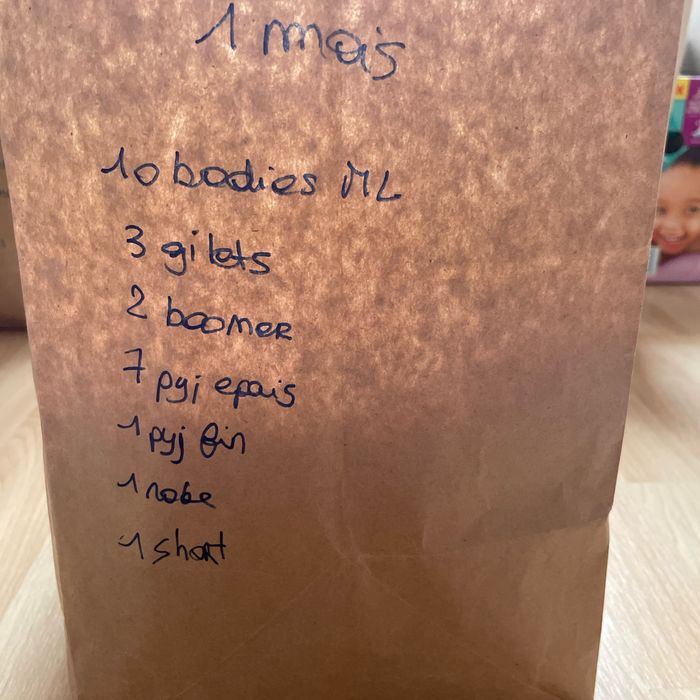 1 mois
10 bodies ML
3 gilets
2 boomer
7 pyj epais
1 pyj fin
1 robe
1 short